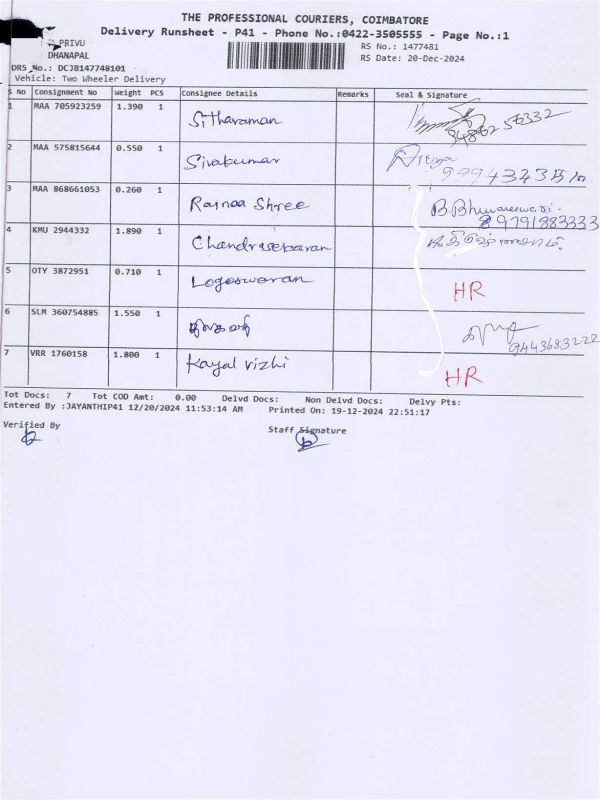 THE PROFESSIONAL COURIERS, COIMBATORE
Delivery Runsheet - P41 - Phone No.:0422-3505555 - Page No.:1
PRIVU
DHANAPAL
RS No.: 1477481
RS Date: 20-Dec-2024
DRS No.: DCJB147748101
Vehicle: Two Wheeler Delivery
S No Consignment No Weight PCS Consignee Details Remarks Seal & Signature
1 MAA 705923259 1.390 1 Sitharaman
2 MAA 575815644 0.550 1 Sivakumar
3 MAA 868661053 0.260 1 Rajnaa Shree B.Bhuvaneswari
9791883333
4 KMU 2944332 1.890 1 Chandrasekaran
5 OTY 3872951 0.710 1 Logeswaran HR
6 SLM 360754885 1.550 1
9443683222
7 VRR 1760158 1.800 1 Kayal vizhi HR
Tot Docs: 7 Tot COD Amt: 0.00 Delvd Docs: Non Delvd Docs: Delvy Pts:
Entered By :JAYANTHIP41 12/20/2024 11:53:14 AM Printed On: 19-12-2024 22:51:17
Verified By
Staff Signature